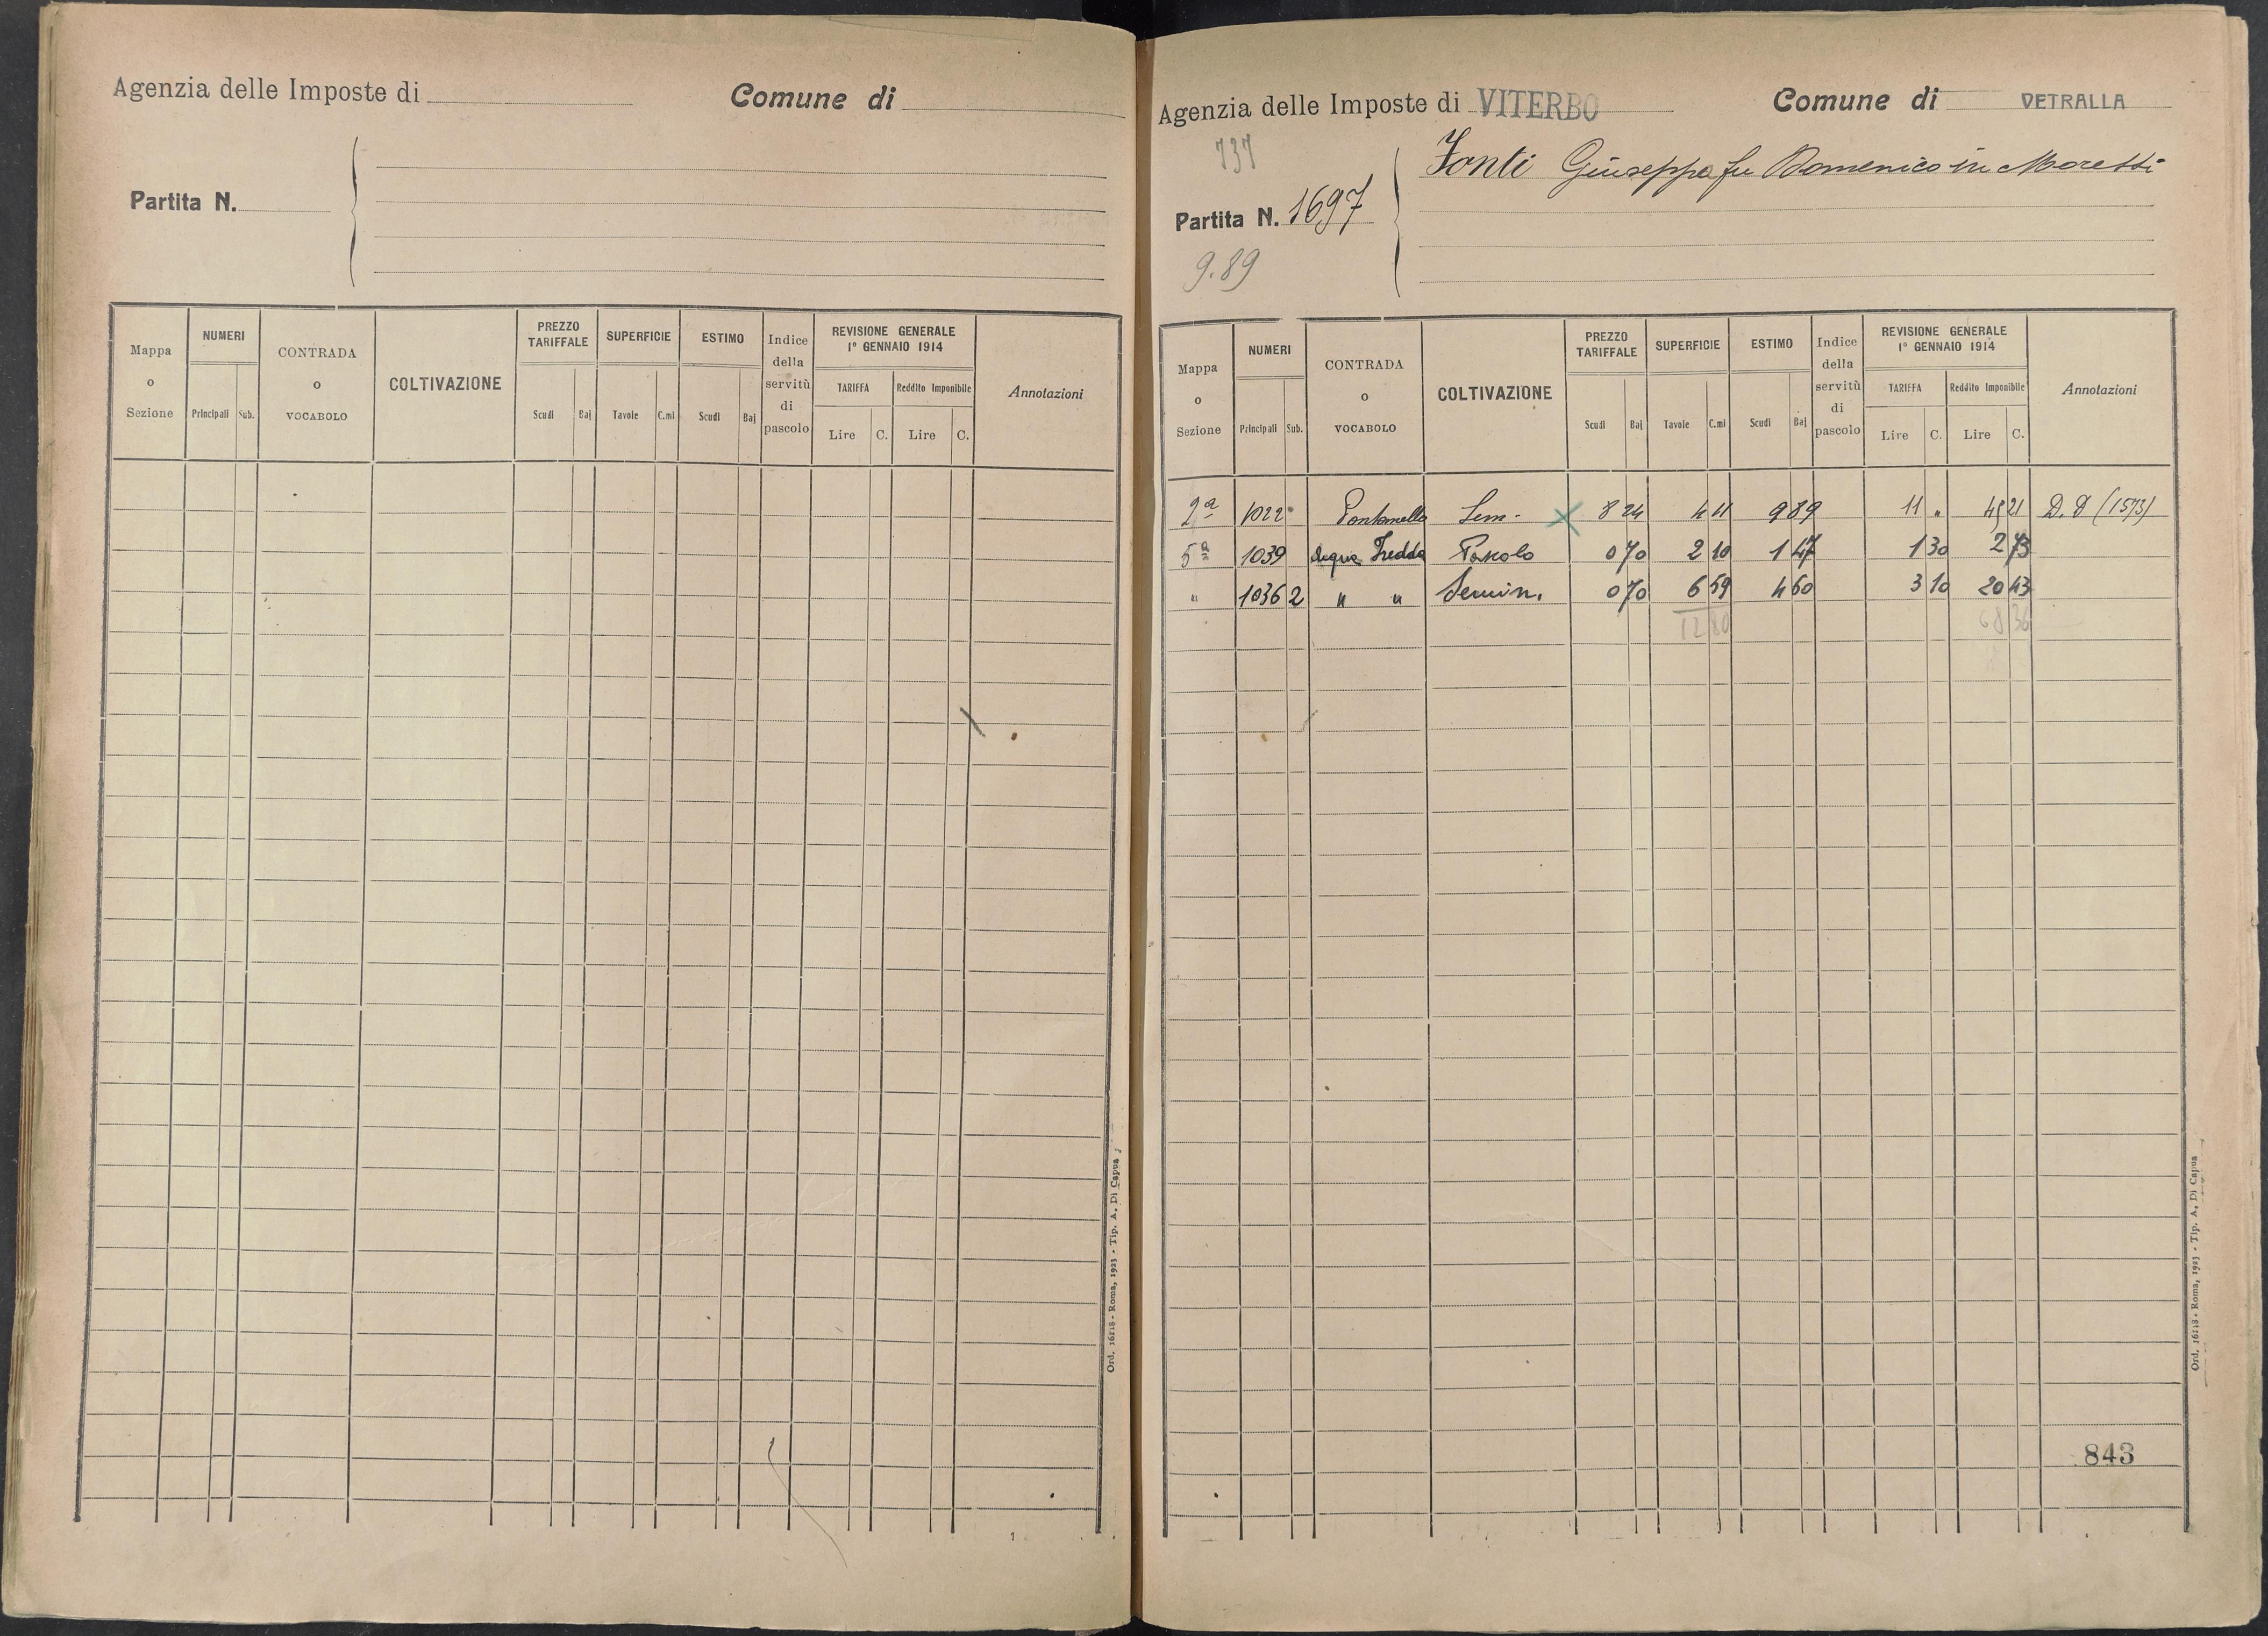 Agenzia delle Imposte di
Comune di
Partita N.
Mappa o Sezione
NUMERI
Principali Sub.
CONTRADA o VOCABOLO
COLTIVAZIONE
PREZZO TARIFFALE
Scudi Baj
SUPERFICIE
Tavole C.mi
ESTIMO
Scudi Baj
Indice della servitù di pascolo
REVISIONE GENERALE
1° GENNAIO 1914
TARIFFA
Lire C.
Reddito Imponibile
Lire C.
Annotazioni
Ord. 16118 - Roma, 1923 - Tip. A. Di Capua
Agenzia delle Imposte di VITERBO
Comune di VETRALLA
737
Fonti Giuseppa fu Domenico in Moretti
Partita N. 1697
9.89
Mappa o Sezione
NUMERI
Principali Sub.
CONTRADA o VOCABOLO
COLTIVAZIONE
PREZZO TARIFFALE
Scudi Baj
SUPERFICIE
Tavole C.mi
ESTIMO
Scudi Baj
Indice della servitù di pascolo
REVISIONE GENERALE
1° GENNAIO 1914
TARIFFA
Lire C.
Reddito Imponibile
Lire C.
Annotazioni
2ª 1022 Sem. 8 24 4 11 9 89 11 " 45 21 D.D (1573)
5ª 1039 Acqua Fredda Pascolo 0 70 2 10 1 47 1 30 2 73
" 1036 2 " " Semin. 0 70 6 59 4 60 3 10 20 43
12 80 68 36
843
Ord. 16118 - Roma, 1923 - Tip. A. Di Capua